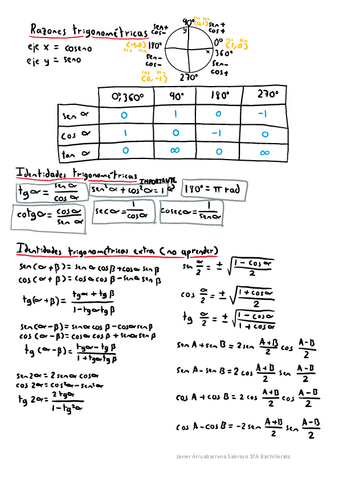 Razones trigonométricas
eje x = coseno
eje y = seno
90°
(0,1)
sen+
cos-
sen+
cos+
(-1,0) 180°
0° (1,0)
360°
sen-
cos-
sen-
cos+
(0,-1)
270°
y
x
0°,360° 90° 180° 270°
sen α 0 1 0 -1
cos α 1 0 -1 0
tan α 0 ∞ 0 ∞
Identidades trigonométricas
IMPORTANTE
tgα = senα/cosα
sen²α + cos²α = 1
180° = π rad
cotgα = cosα/senα
secα = 1/cosα
cosecα = 1/senα
Identidades trigonométricas extra (no aprender)
sen(α+β) = senα cosβ + cosα senβ
cos(α+β) = cosα cosβ - senα senβ
tg(α+β) = tgα + tgβ / 1 - tgα tgβ
sen(α-β) = senα cosβ - cosα senβ
cos(α-β) = cosα cosβ + senα senβ
tg(α-β) = tgα - tgβ / 1 + tgα tgβ
sen2α = 2senα cosα
cos2α = cos²α - sen²α
tg 2α = 2tgα / 1 - tg²α
sen α/2 = ± √(1 - cosα / 2)
cos α/2 = ± √(1 + cosα / 2)
tg α/2 = ± √(1 - cosα / 1 + cosα)
sen A + sen B = 2 sen A+B/2 cos A-B/2
sen A - sen B = 2 cos A+B/2 sen A-B/2
cos A + cos B = 2 cos A+B/2 cos A-B/2
cos A - cos B = -2 sen A+B/2 sen A-B/2
Javier Arruabarrena Sabroso 1ºA Bachillerato